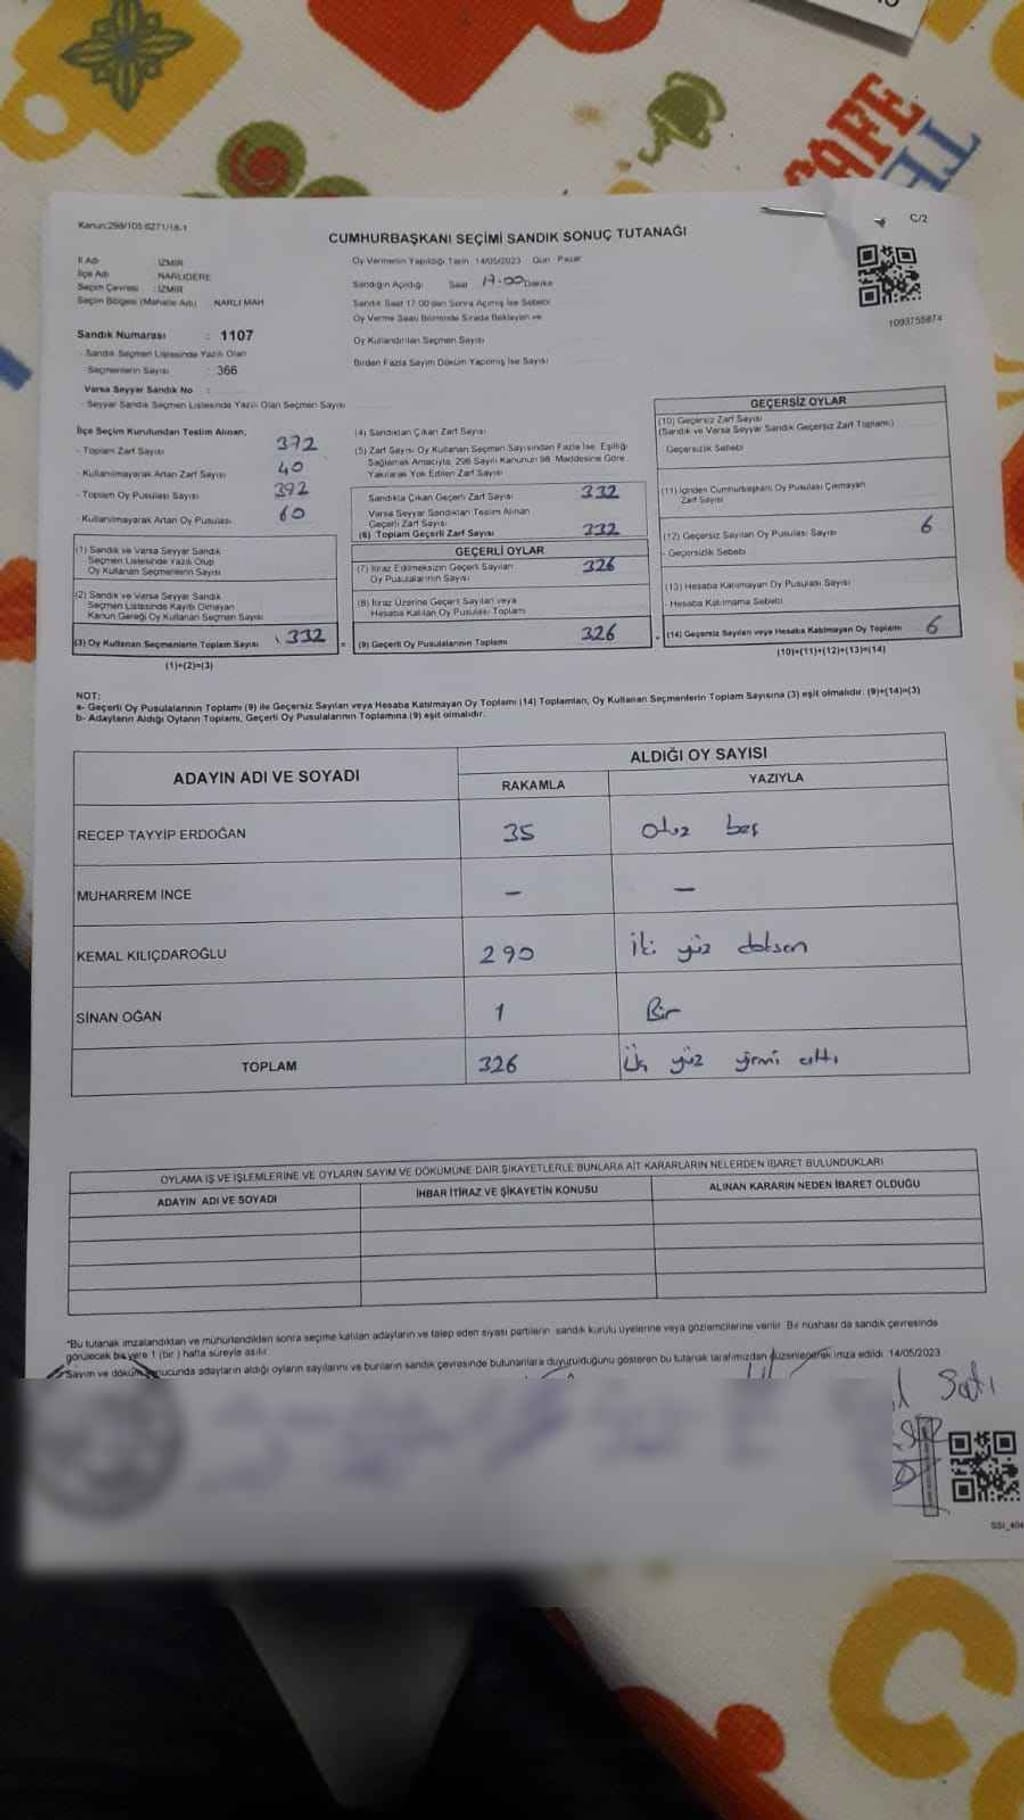 CAFE
TE
Kanun:298/105 6271/18-1
C/2
CUMHURBAŞKANI SEÇİMİ SANDIK SONUÇ TUTANAĞI
İl Adı : İZMİR
İlçe Adı : NARLIDERE
Seçim Çevresi : İZMİR
Seçim Bölgesi (Mahalle Adı) : NARLI MAH
Oy Vermenin Yapıldığı Tarih : 14/05/2023 Gün : Pazar
Sandığın Açıldığı Saat 17.00 Dakika
Sandık Saat 17:00'den Sonra Açılmış İse Sebebi
Oy Verme Saati Bitiminde Sırada Bekleyen ve
Oy Kullandırılan Seçmen Sayısı
Birden Fazla Sayım Döküm Yapılmış İse Sayısı
1093755874
Sandık Numarası : 1107
Sandık Seçmen Listesinde Yazılı Olan
Seçmenlerin Sayısı : 366
Varsa Seyyar Sandık No :
Seyyar Sandık Seçmen Listesinde Yazılı Olan Seçmen Sayısı
İlçe Seçim Kurulundan Teslim Alınan;
- Toplam Zarf Sayısı 372
- Kullanılmayarak Artan Zarf Sayısı 40
- Toplam Oy Pusulası Sayısı 392
- Kullanılmayarak Artan Oy Pusulası 60
(1) Sandık ve Varsa Seyyar Sandık
Seçmen Listesinde Yazılı Olup
Oy Kullanan Seçmenlerin Sayısı
(2) Sandık ve Varsa Seyyar Sandık
Seçmen Listesinde Kayıtlı Olmayan
Kanun Gereği Oy Kullanan Seçmen Sayısı
(3) Oy Kullanan Seçmenlerin Toplam Sayısı 332 =
(1)+(2)=(3)
(4) Sandıktan Çıkan Zarf Sayısı
(5) Zarf Sayısı Oy Kullanan Seçmen Sayısından Fazla İse, Eşitliği
Sağlamak Amacıyla, 298 Sayılı Kanunun 98. Maddesine Göre
Yakılarak Yok Edilen Zarf Sayısı
Sandıkta Çıkan Geçerli Zarf Sayısı 332
Varsa Seyyar Sandıktan Teslim Alınan
Geçerli Zarf Sayısı
(6) Toplam Geçerli Zarf Sayısı 332
GEÇERLİ OYLAR
(7) İtiraz Edilmeksizin Geçerli Sayılan
Oy Pusulalarının Sayısı 326
(8) İtiraz Üzerine Geçerli Sayılan veya
Hesaba Katılan Oy Pusulası Toplamı
(9) Geçerli Oy Pusulalarının Toplamı 326
GEÇERSİZ OYLAR
(10) Geçersiz Zarf Sayısı
(Sandık ve Varsa Seyyar Sandık Geçersiz Zarf Toplamı)
Geçersizlik Sebebi
(11) İçinden Cumhurbaşkanı Oy Pusulası Çıkmayan
Zarf Sayısı
(12) Geçersiz Sayılan Oy Pusulası Sayısı 6
- Geçersizlik Sebebi
(13) Hesaba Katılmayan Oy Pusulası Sayısı
- Hesaba Katılmama Sebebi
+ (14) Geçersiz Sayılan veya Hesaba Katılmayan Oy Toplamı 6
(10)+(11)+(12)+(13)=(14)
NOT:
a- Geçerli Oy Pusulalarının Toplamı (9) ile Geçersiz Sayılan veya Hesaba Katılmayan Oy Toplamı (14) Toplamları, Oy Kullanan Seçmenlerin Toplam Sayısına (3) eşit olmalıdır. (9)+(14)=(3)
b- Adayların Aldığı Oyların Toplamı, Geçerli Oy Pusulalarının Toplamına (9) eşit olmalıdır.
ADAYIN ADI VE SOYADI
ALDIĞI OY SAYISI
RAKAMLA YAZIYLA
RECEP TAYYİP ERDOĞAN 35 Otuz beş
MUHARREM İNCE - -
KEMAL KILIÇDAROĞLU 290 iki yüz doksan
SİNAN OĞAN 1 Bir
TOPLAM 326 üç yüz yirmi altı
OYLAMA İŞ VE İŞLEMLERİNE VE OYLARIN SAYIM VE DÖKÜMÜNE DAİR ŞİKAYETLERLE BUNLARA AİT KARARLARIN NELERDEN İBARET BULUNDUKLARI
ADAYIN ADI VE SOYADI İHBAR İTİRAZ VE ŞİKAYETİN KONUSU ALINAN KARARIN NEDEN İBARET OLDUĞU
*Bu tutanak imzalandıktan ve mühürlendikten sonra seçime katılan adayların ve talep eden siyasi partilerin sandık kurulu üyelerine veya gözlemcilerine verilir. Bir nüshası da sandık çevresinde
görülecek bir yere 1 (bir) hafta süreyle asılır.
Sayım ve döküm sonucunda adayların aldığı oyların sayılarını ve bunların sandık çevresinde bulunanlara duyurulduğunu gösteren bu tutanak tarafımızdan düzenlenerek imza edildi. 14/05/2023